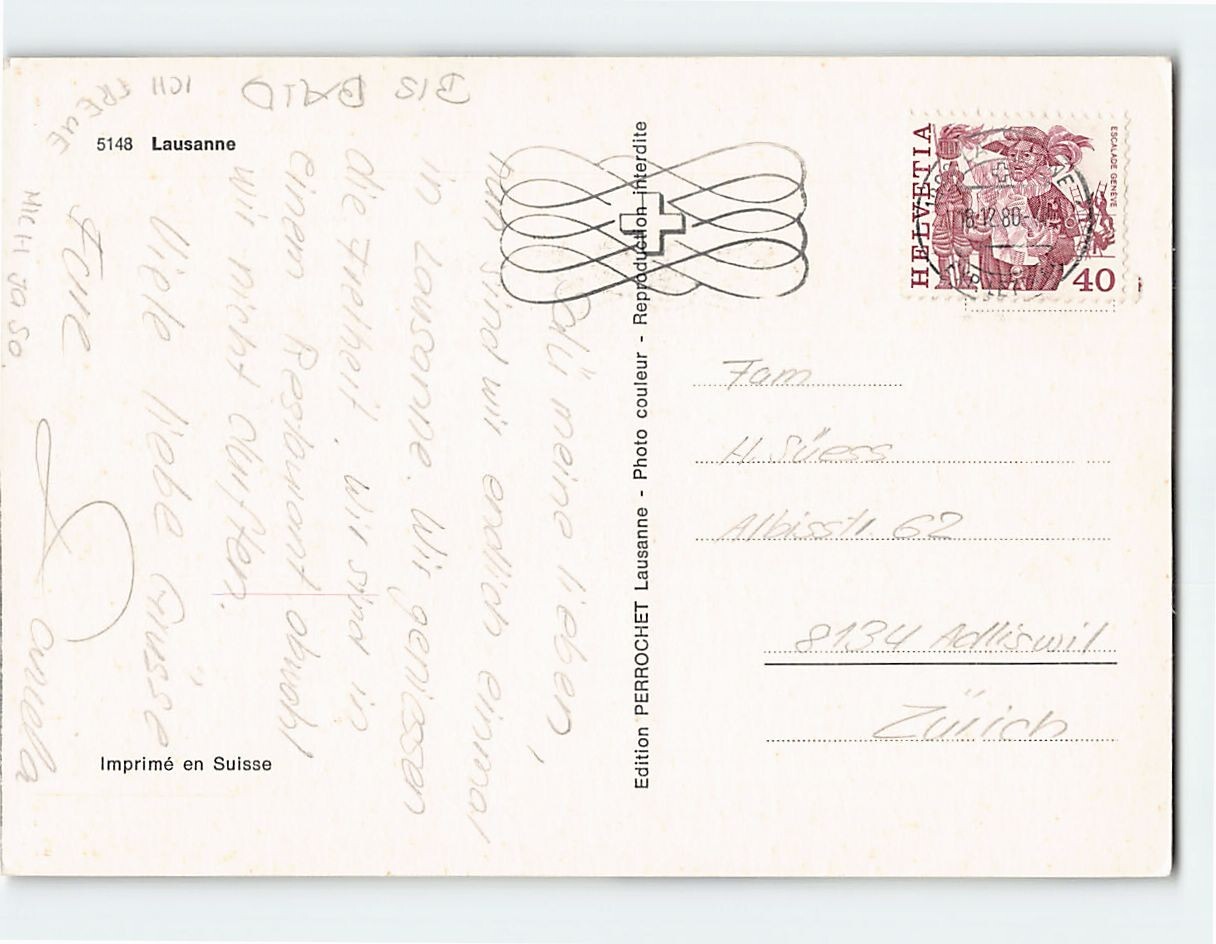 5148 Lausanne
Salü meine lieben,
Nun sind wir endlich einmal
in Lausanne. Wir geniessen
die Freiheit. Wir sind in
einen Restaurant obwohl
wir nicht dürften.
Viele liebe Grüsse
Eure
Daniela
BIS BALD
ICH FREUE
MICH JA SO.
Imprimé en Suisse
Edition PERROCHET Lausanne - Photo couleur - Reproduction interdite
HELVETIA
ESCALADE GENÈVE
40
Fam
H. Süess
Albisstr. 62
8134 Adliswil
Zürich